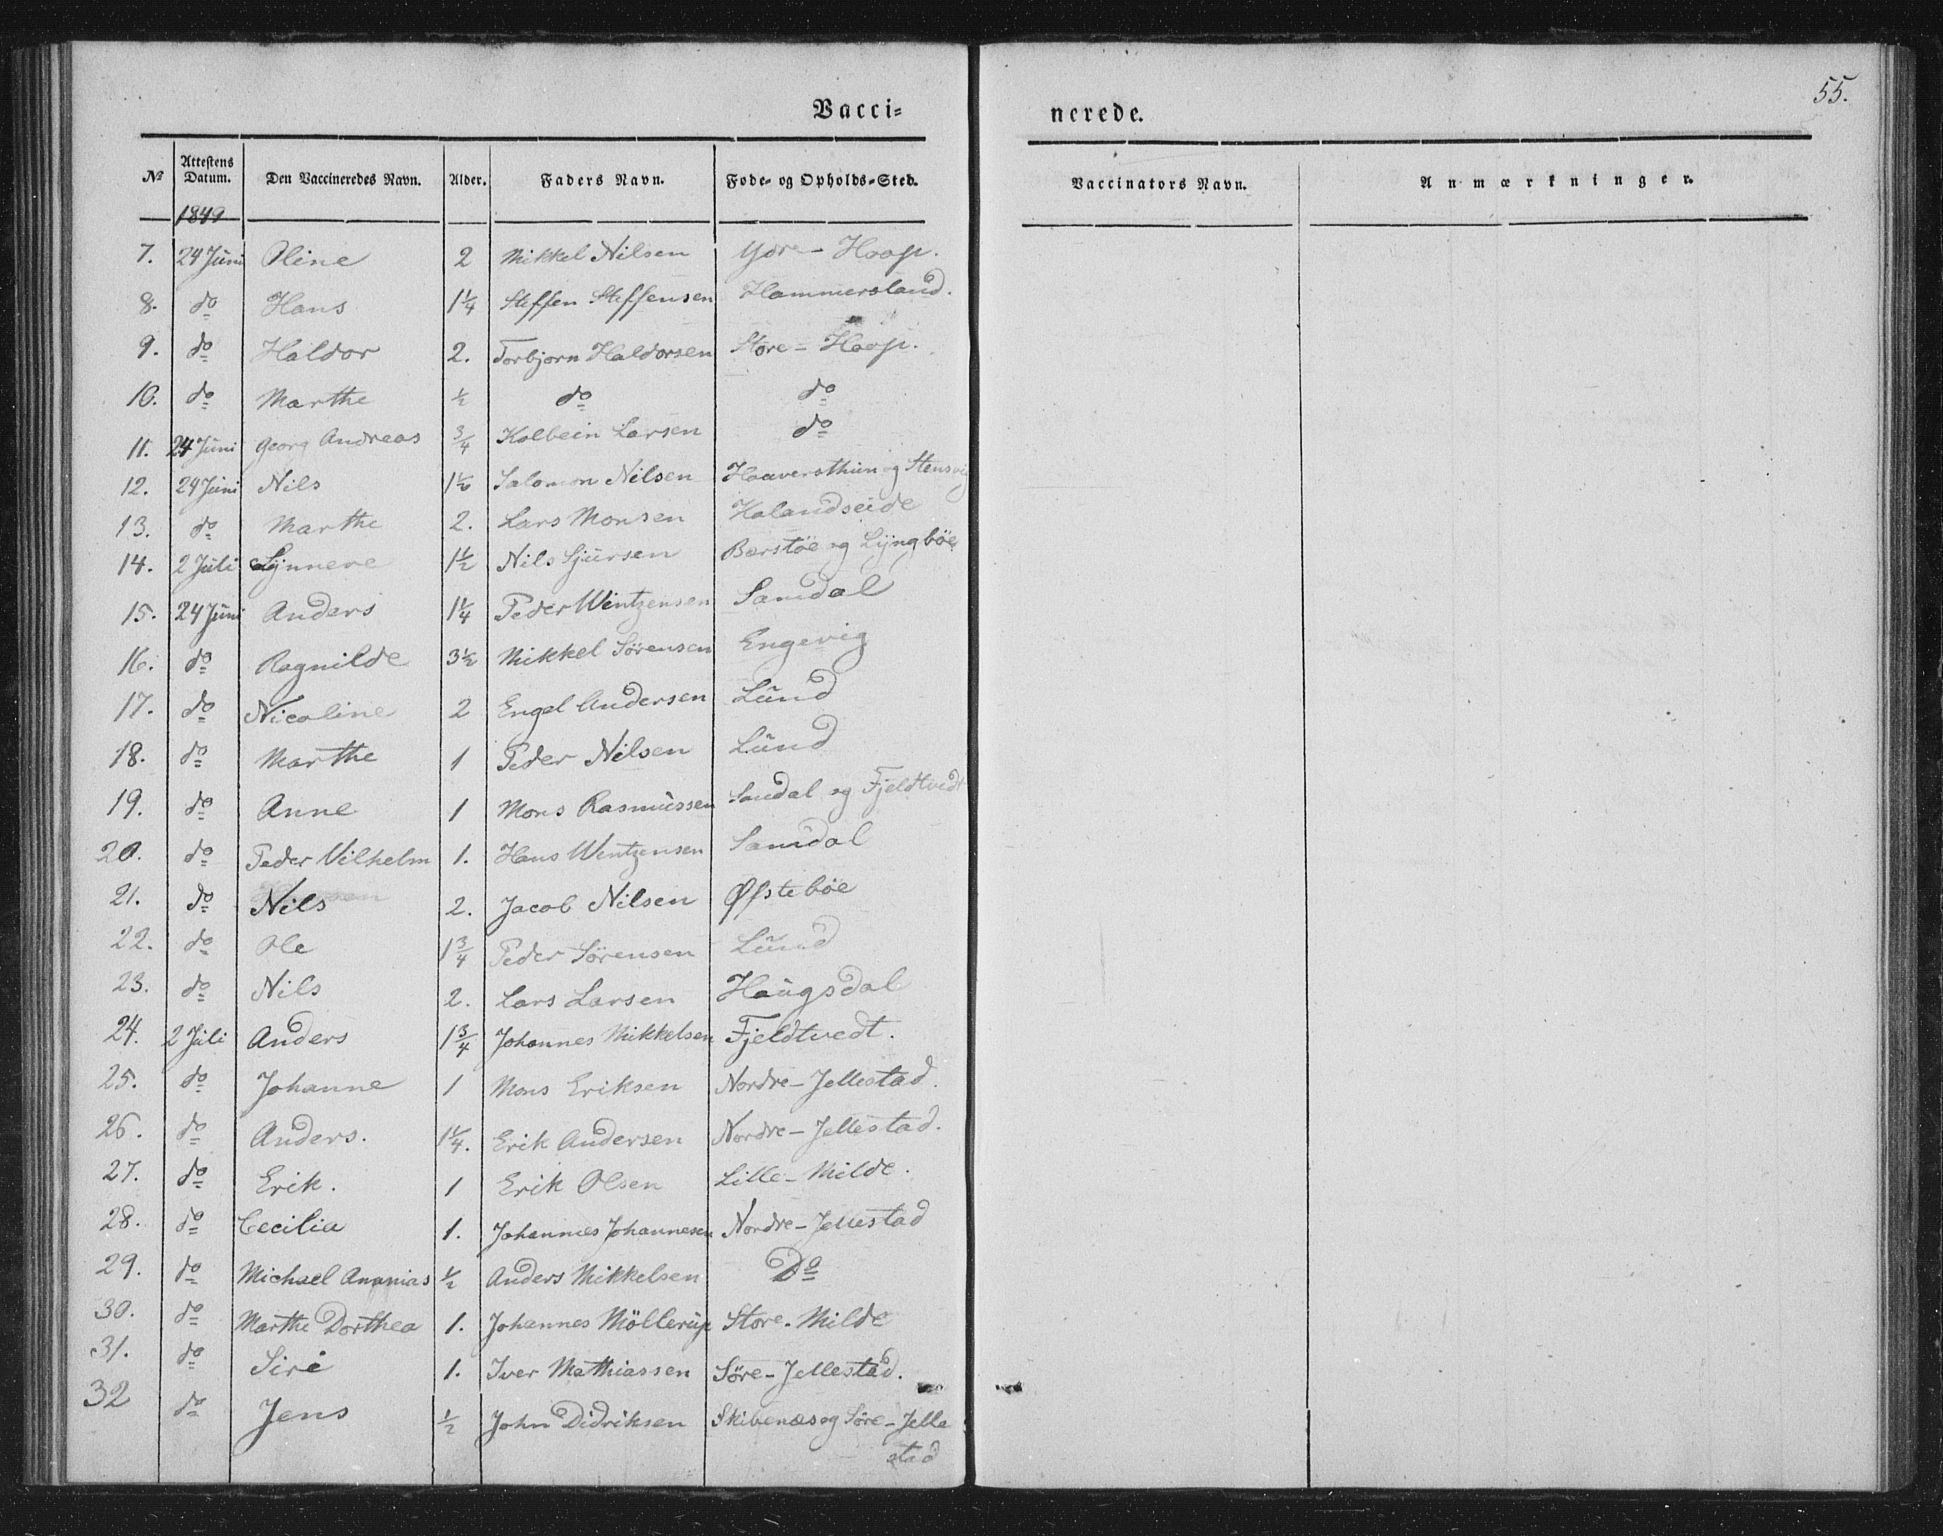 55.
Vacci= nerede.
№ Attestens Datum. Den Vaccineredes Navn. Alder. Faders Navn. Fode- og Opholds=Sted. Vaccinators Navn. Anmærkninger.
1849
7. 24 Juni Oline 2 Mikkel Nilsen Ydre - Hoop.
8. do Hans 1 1/4 Steffen Steffensen Hammersland.
9. do Haldor 2. Torbjorn Haldorsen Store = Hoop.
10. do Marthe 1/2 do do
11. 24 Juni Georg Andreas 3/4 Kolbein Larsen do
12. 24 Juni Nils Salomon Nilsen Haaversthun og Stensvig
13. do Marthe 2. Lars Monsen Halandseide
14. 2 Juli Synneve 1 1/2 Nils Sjursen Barstöe og Lyngböe
15. 24 Juni Anders 1 1/4 Peder Wentzensen Samdal
16. do Ragnilde 3 1/2 Mikkel Sörensen Engevig
17. do Nicoline 2 Engel Andersen Lund
18. do Marthe 1 Peder Nilsen Lund
19. do Anne 1 Mons Rasmussen Samdal og Fjeldtvedt
20. do Peder Vilhelm 1. Hans Wentzensen Samdal
21. do Nils 2. Jacob Nilsen Øfsteböe
22. do Ole 1 3/4 Peder Sörensen Lund
23. do Nils 2. Lars Larsen Haugsdal
24. 2 Juli Anders 1 3/4 Johannes Mikkelsen Fjeldtvedt.
25. do Johanne 1 Mons Eriksen Nordre - Jellestad.
26. do Anders. 1 1/4. Erik Andersen Nordre - Jellestad.
27. do Erik. 1 Erik Olsen Lille - Milde.
28. do Cecilia 1. Johannes Johannesen Nordre - Jellestad
29. do Michael Ananias 1/2 Anders Mikkelsen Do
30. do Marthe Dorthea 1. Johannes Möllerup Store - Milde
31. do Siri 1. Iver Mathiassen Söre - Jellestad.
32 do Jens 1/2 John Didriksen Skibenæs og Söre - Jelle
stad